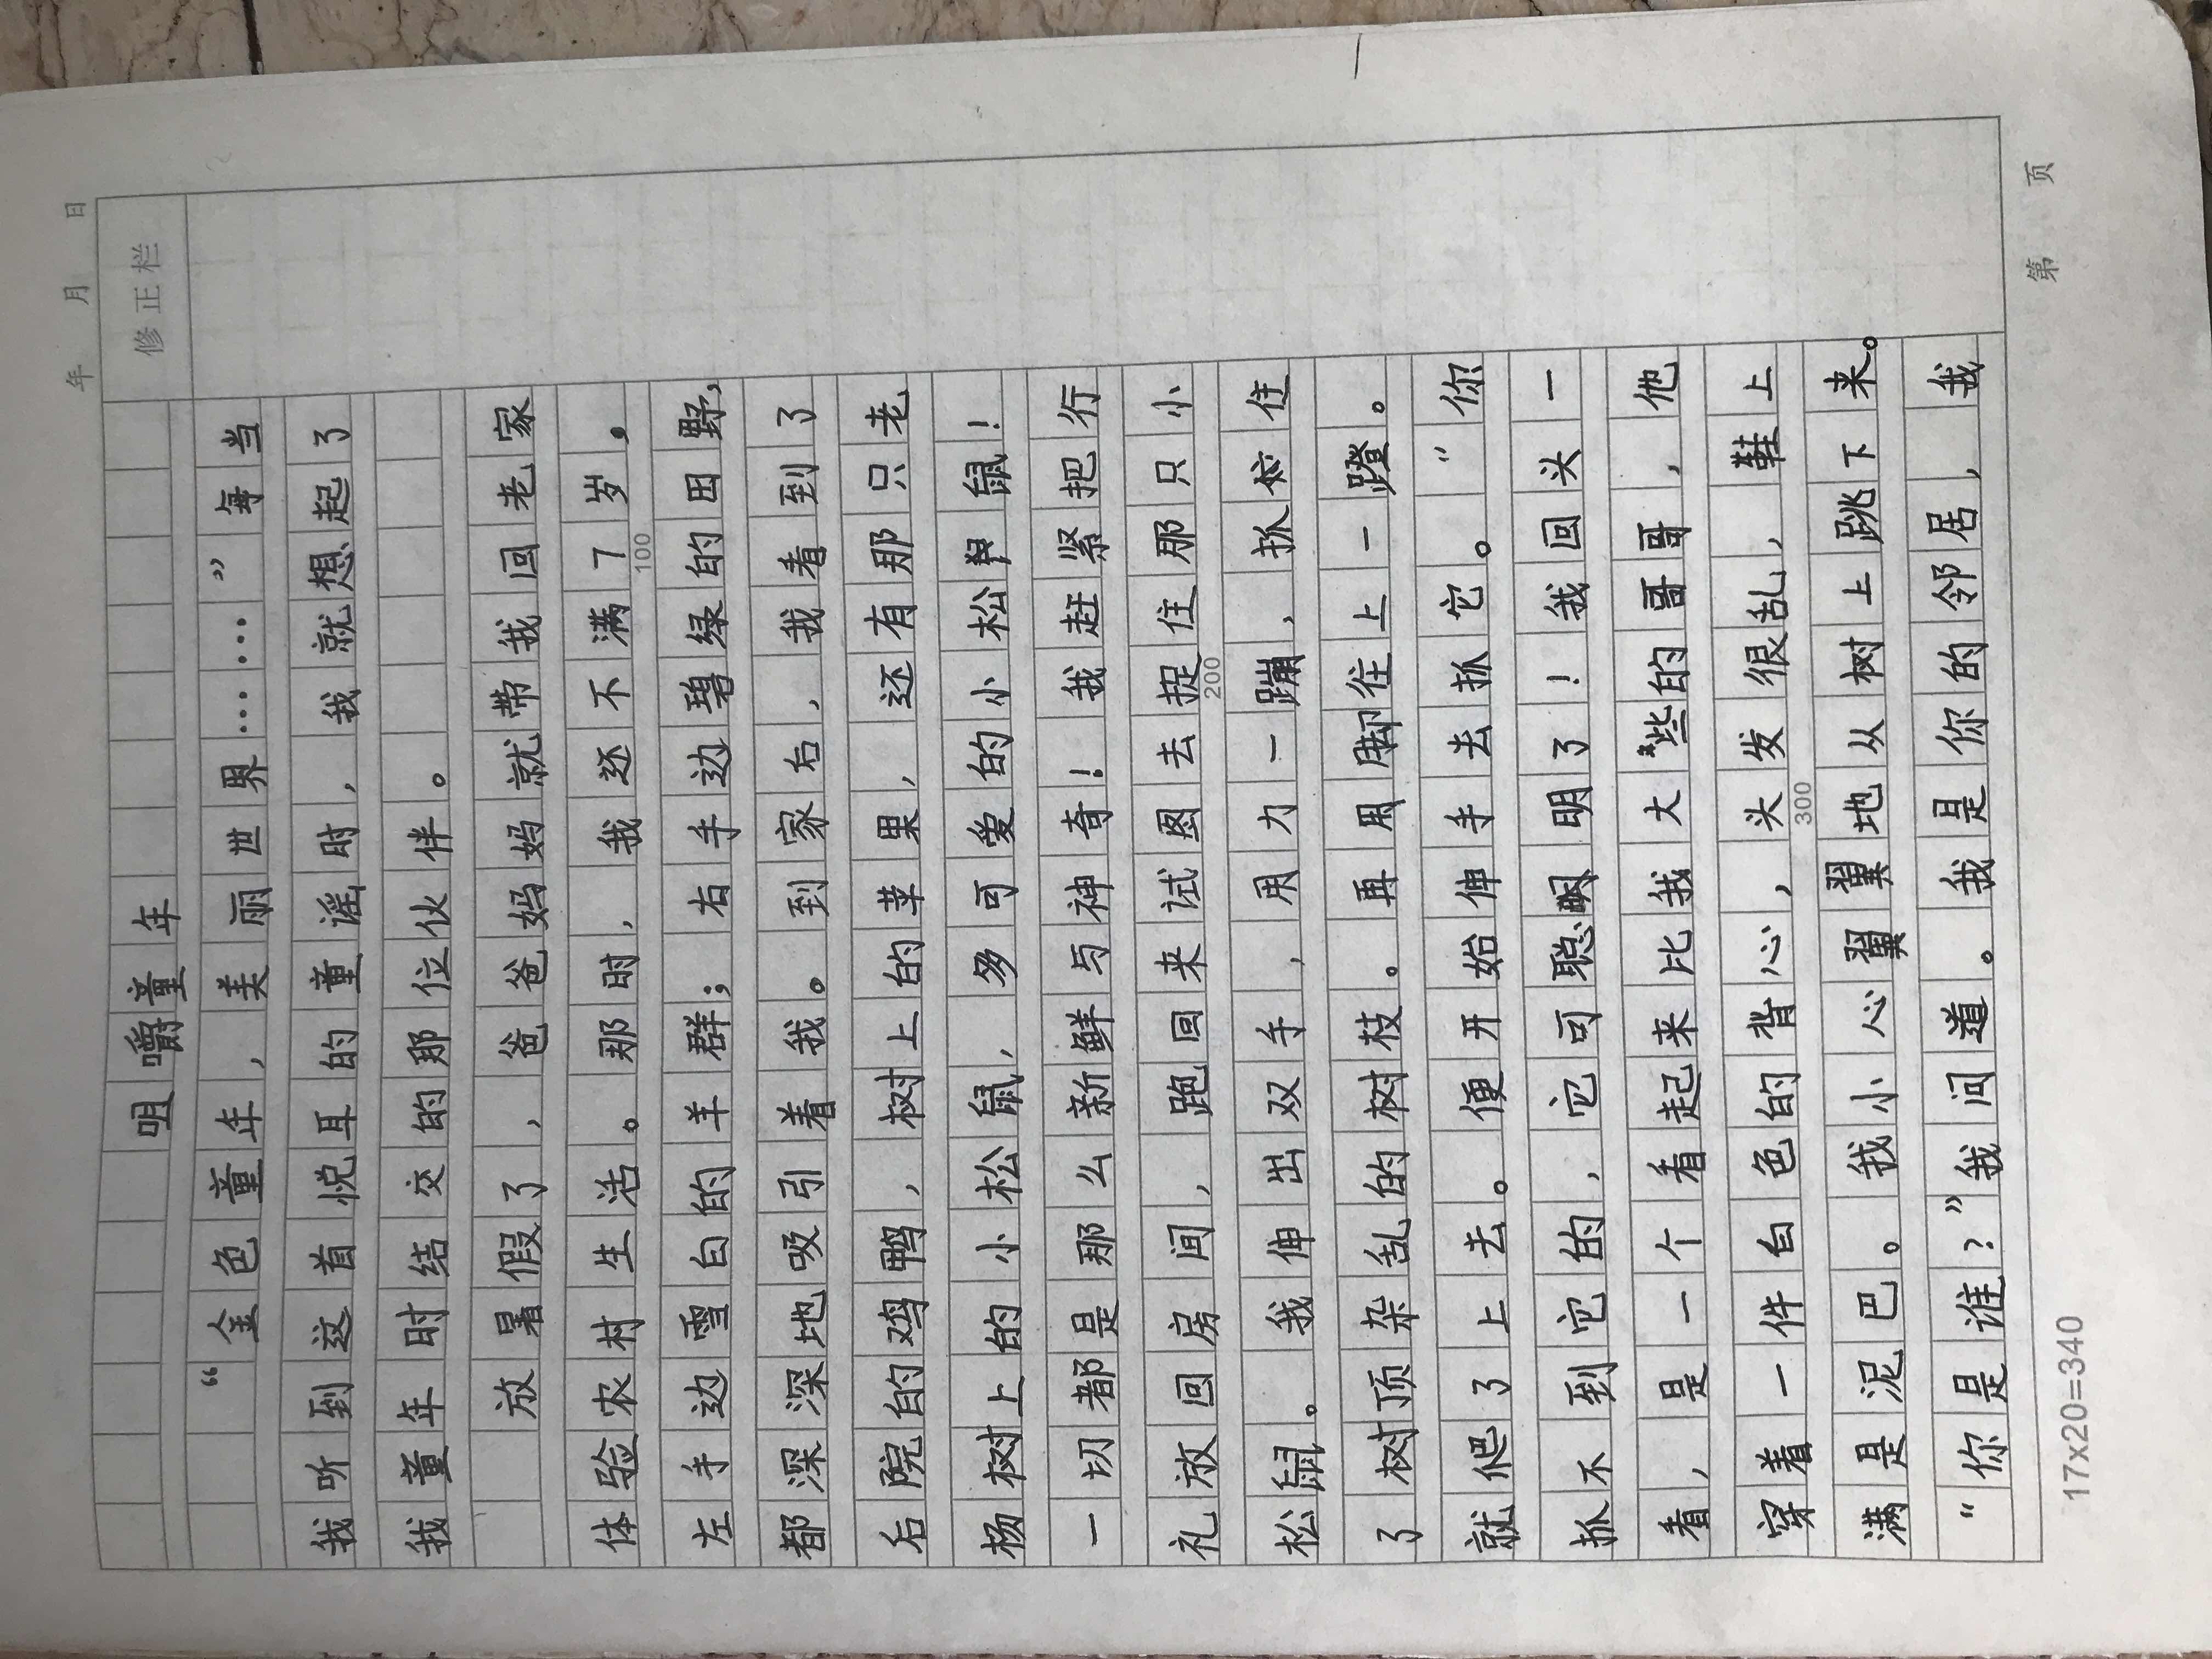 年 月 日
修正栏
咀嚼童年
“金色童年，美丽世界……”每当
我听到这首悦耳的童谣时，我就想起了
我童年时结交的那位伙伴。
放暑假了，爸爸妈妈就带我回老家
体验农村生活。那时，我还不满7岁。
100
左手边雪白的羊群；右手边碧绿的田野，
都深深地吸引着我。到家后，我看到了
后院的鸡鸭，树上的苹果，还有那只老
杨树上的小松鼠，多可爱的小松鼠！
一切都是那么新鲜与神奇！我赶紧把行
礼放回房间，跑回来试图去捉住那只小
200
松鼠。我伸出双手，用力一蹦，抓住
了树顶杂乱的树枝。再用脚往上一蹬。
就爬了上去。便开始伸手去抓它。“你
抓不到它的，它可聪明了！我回头一
看，是一个看起来比我大些的哥哥，他
穿着一件白色的背心，头发很乱，鞋上
300
满是泥巴。我小心翼翼地从树上跳下来。
“你是谁？”我问道。我是你的邻居，我
17x20=340
第 页